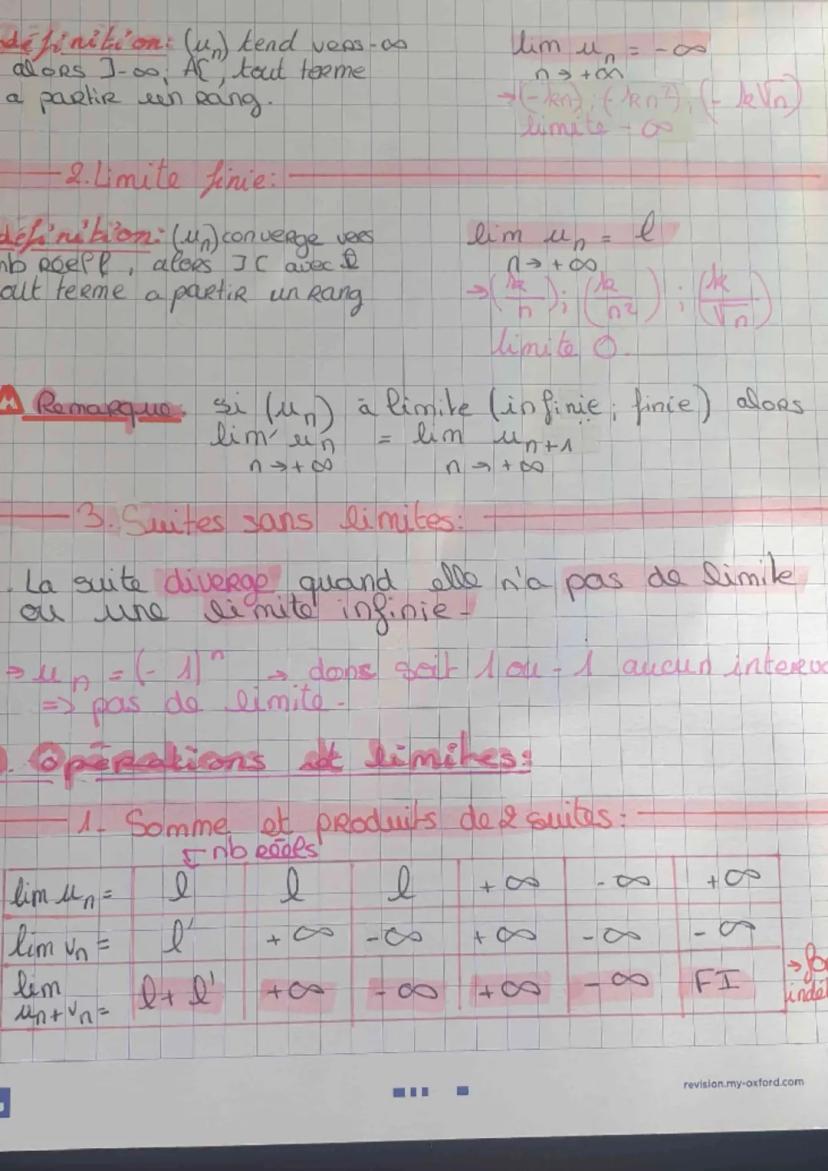 définition: (un) tend vers -∞
alors ]-∞, A[, tout terme
a partir un rang.
lim un = -∞
n→+∞
→(-kn); (-kn²); (-k√n)
limite -∞
2. Limite finie:
définition: (un) converge vers
nb réel l, alors IC avec l
out terme a partir un rang
lim un = l
n→+∞
→(k/n); (k/n²); (k/√n)
limite 0.
Remarque: si (un) à limite (infinie; finie) alors
lim un = lim un+1
n→+∞ n→+∞
3. Suites sans limites:
. La suite diverge quand elle n'a pas de limite
ou une limite infinie-
⇒ un = (-1)ⁿ → dans soit 1 ou -1 aucun interv
⇒ pas de limite-
. Opérations et limites:
1- Somme et produits de 2 suites:
nb réels
lim un = l l l +∞ -∞ +∞
lim vn = l' +∞ -∞ +∞ -∞ -∞
lim un+vn = l+l' +∞ -∞ +∞ -∞ FI
→ fo
indé
revision.my-oxford.com